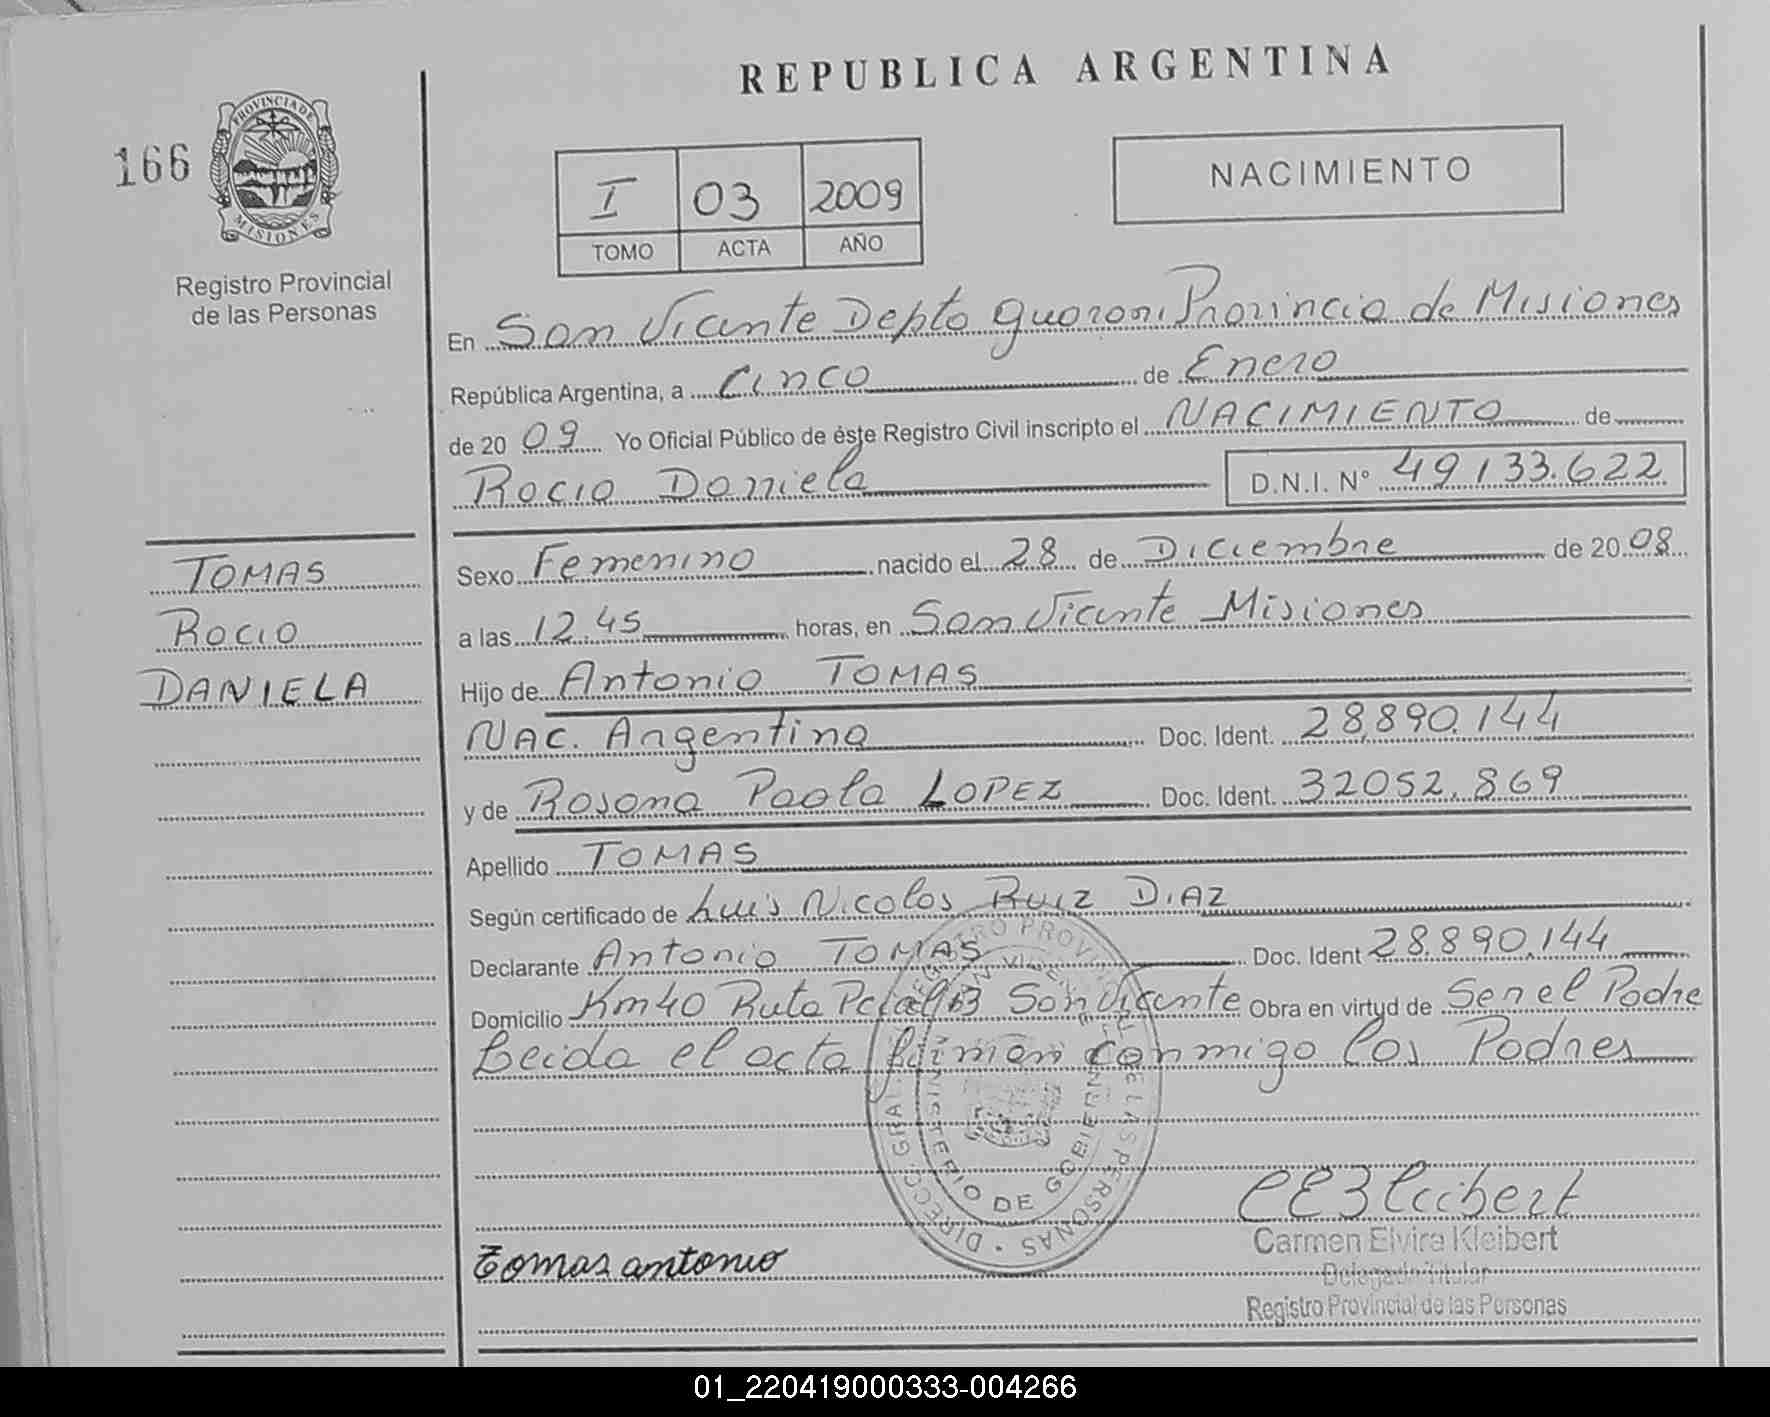 REPUBLICA ARGENTINA
166
PROVINCIA DE
MISIONES
Registro Provincial
de las Personas
I 03 2009
TOMO ACTA AÑO
NACIMIENTO
En San Vicente Depto guarani Provincia de Misiones
República Argentina, a Cinco de Enero
de 20 09 Yo Oficial Público de éste Registro Civil inscripto el NACIMIENTO de
Rocio Daniela D.N.I. N° 49133.622
TOMAS
ROCIO
DANIELA
Sexo Femenino nacido el 28 de Diciembre de 20 08
a las 12.45 horas, en San Vicente Misiones
Hijo de Antonio TOMAS
Nac. Argentina Doc. Ident. 28,890.144
y de Rosana Paola LOPEZ Doc. Ident. 32052.869
Apellido TOMAS
Según certificado de Luis Nicolas Ruiz Diaz
Declarante Antonio TOMAS Doc. Ident 28.890.144
Domicilio Km40 Ruta Pcial 13 San Vicente Obra en virtyd de Ser el Padre
Leida el acta firman conmigo los Padres
DIRECC. GRAL. REGISTRO PROV. DE LAS PERSONAS
MINISTERIO DE GOBIERNO
SAN VICENTE
CEKleibert
Tomas antonio
Carmen Elvira Kleibert
Delegado Titular
Registro Provincial de las Personas
01_220419000333-004266